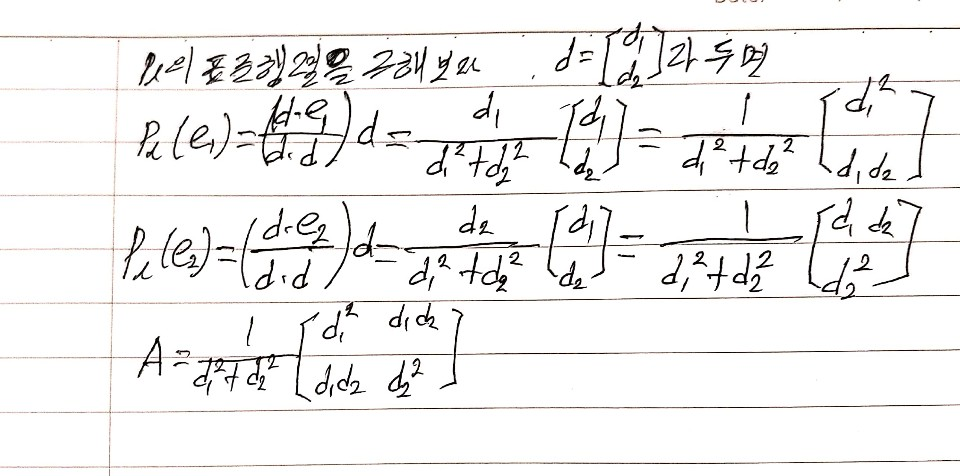 P_ℓ의 표준행렬을 구해보자. d=[d₁ d₂]라 두면
P_ℓ(e₁)=(d·e₁/d·d)d=d₁/(d₁²+d₂²)[d₁ d₂]=1/(d₁²+d₂²)[d₁² d₁d₂]
P_ℓ(e₂)=(d·e₂/d·d)d=d₂/(d₁²+d₂²)[d₁ d₂]=1/(d₁²+d₂²)[d₁d₂ d₂²]
A=1/(d₁²+d₂²)[d₁² d₁d₂ d₁d₂ d₂²]